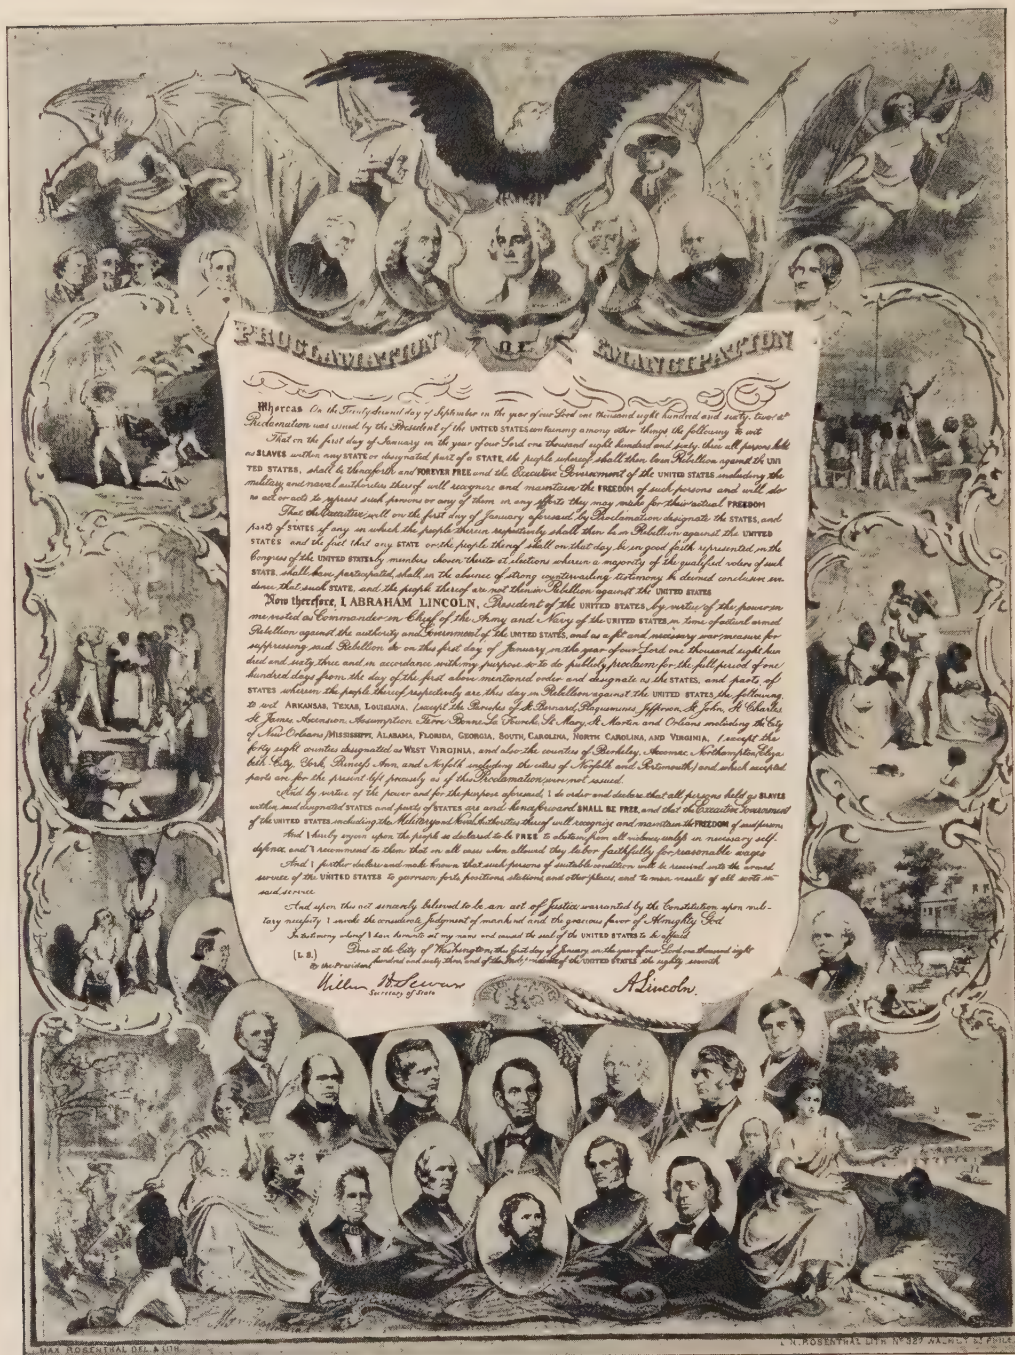 PROCLAMATION OF EMANCIPATION
Whereas On the Twenty Second day of September in the year of our Lord one thousand eight hundred and sixty-two, a
Proclamation was issued by the President of the UNITED STATES containing among other things the following to wit
That on the first day of January in the year of our Lord one thousand eight hundred and sixty three all persons held
as SLAVES within any STATE or designated part of a STATE, the people whereof shall then be in Rebellion against the UNI
TED STATES, shall be thenceforth and FOREVER FREE and the Executive Government of the UNITED STATES including the
military and naval authorities thereof will recognize and maintain the FREEDOM of such persons and will do
no act or acts to repress such persons or any of them in any efforts they may make for their actual FREEDOM
That the Executive will on the first day of January aforesaid by Proclamation designate the STATES, and
parts of STATES if any in which the people therein respectively shall then be in Rebellion against the UNITED
STATES and the fact that any STATE or the people thereof shall on that day be in good faith represented in the
Congress of the UNITED STATES by members chosen thereto at elections wherein a majority of the qualified voters of such
STATE, shall have participated, shall in the absence of strong countervailing testimony be deemed conclusive evi
dence that such STATE, and the people thereof are not then in Rebellion against the UNITED STATES
Now therefore, I, ABRAHAM LINCOLN, President of the UNITED STATES, by virtue of the power in
me vested as Commander in Chief of the Army and Navy of the UNITED STATES, in time of actual armed
Rebellion against the authority and Government of the UNITED STATES, and as a fit and necessary war measure for
suppressing said Rebellion do on this first day of January in the year of our Lord one thousand eight hun
dred and sixty three and in accordance with my purpose so to do publicly proclaim for the full period of one
hundred days from the day of the first above mentioned order and designate as the STATES, and parts of
STATES wherein the people thereof respectively are this day in Rebellion against the UNITED STATES, the following
to wit ARKANSAS, TEXAS, LOUISIANA, (except the Parishes of St. Bernard, Plaquemines, Jefferson, St John, St Charles
St James, Ascension, Assumption, Terre Bonne, La Fourche, St Mary, St Martin and Orleans including the City
of New Orleans) MISSISSIPPI, ALABAMA, FLORIDA, GEORGIA, SOUTH, CAROLINA, NORTH CAROLINA, AND VIRGINIA, (except the
forty eight counties designated as WEST VIRGINIA, and also the counties of Berkeley, Accomac, Northampton, Eliza
beth-City, York, Princess Ann, and Norfolk including the cities of Norfolk and Portsmouth) and which excepted
parts are for the present left precisely as if this Proclamation were not issued.
And by virtue of the power and for the purpose aforesaid, I do order and declare that all persons held as SLAVES
within said designated STATES and parts of STATES are and henceforward SHALL BE FREE, and that the Executive Government
of the UNITED STATES, including the Military and Naval Authorities thereof will recognize and maintain the FREEDOM of said persons
And I hereby enjoin upon the people so declared to be FREE to abstain from all violence, unless in necessary self-
defence, and I recommend to them that in all cases when allowed they labor faithfully for reasonable wages
And I further declare and make known that such persons of suitable condition will be received into the armed
service of the UNITED STATES to garrison forts, positions, stations, and other places, and to man vessels of all sorts in
said service
And upon this act sincerely believed to be an act of Justice warranted by the Constitution upon mili-
tary necessity I invoke the considerate Judgment of mankind and the gracious favor of Almighty God
In testimony whereof I have hereunto set my name and caused the seal of the UNITED STATES to be affixed
Done at the City of Washington, the first day of January, in the year of our Lord one thousand eight
(L. S.) hundred and sixty three, and of the of the UNITED STATES the eighty seventh
By the President
William H. Seward A Lincoln.
Secretary of State
MAX ROSENTHAL DEL. & LITH.
L. N. ROSENTHAL LITH. No 327 WALNUT St PHILA.